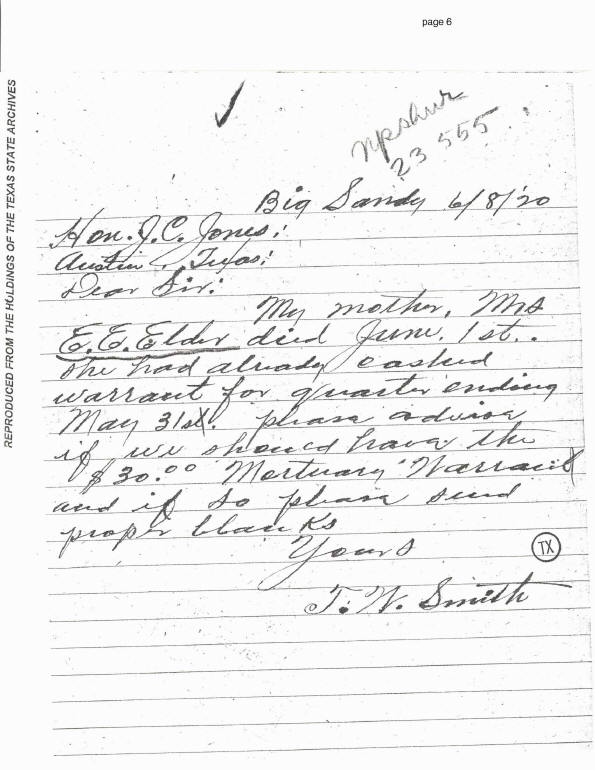 page 6
REPRODUCED FROM THE HOLDINGS OF THE TEXAS STATE ARCHIVES
Upshur
23 555
Big Sandy 6/8/20
Hon. J. C. Jones:
Austin, Texas:
Dear Sir:
My mother, Mrs
E. E. Elder died June. 1st..
She had already cashed
warrant for quarter ending
May 31st. please advise
if we should have the
$30.00 Mortuary Warrant
and if so please send
proper blanks
Yours
TX
T. W. Smith